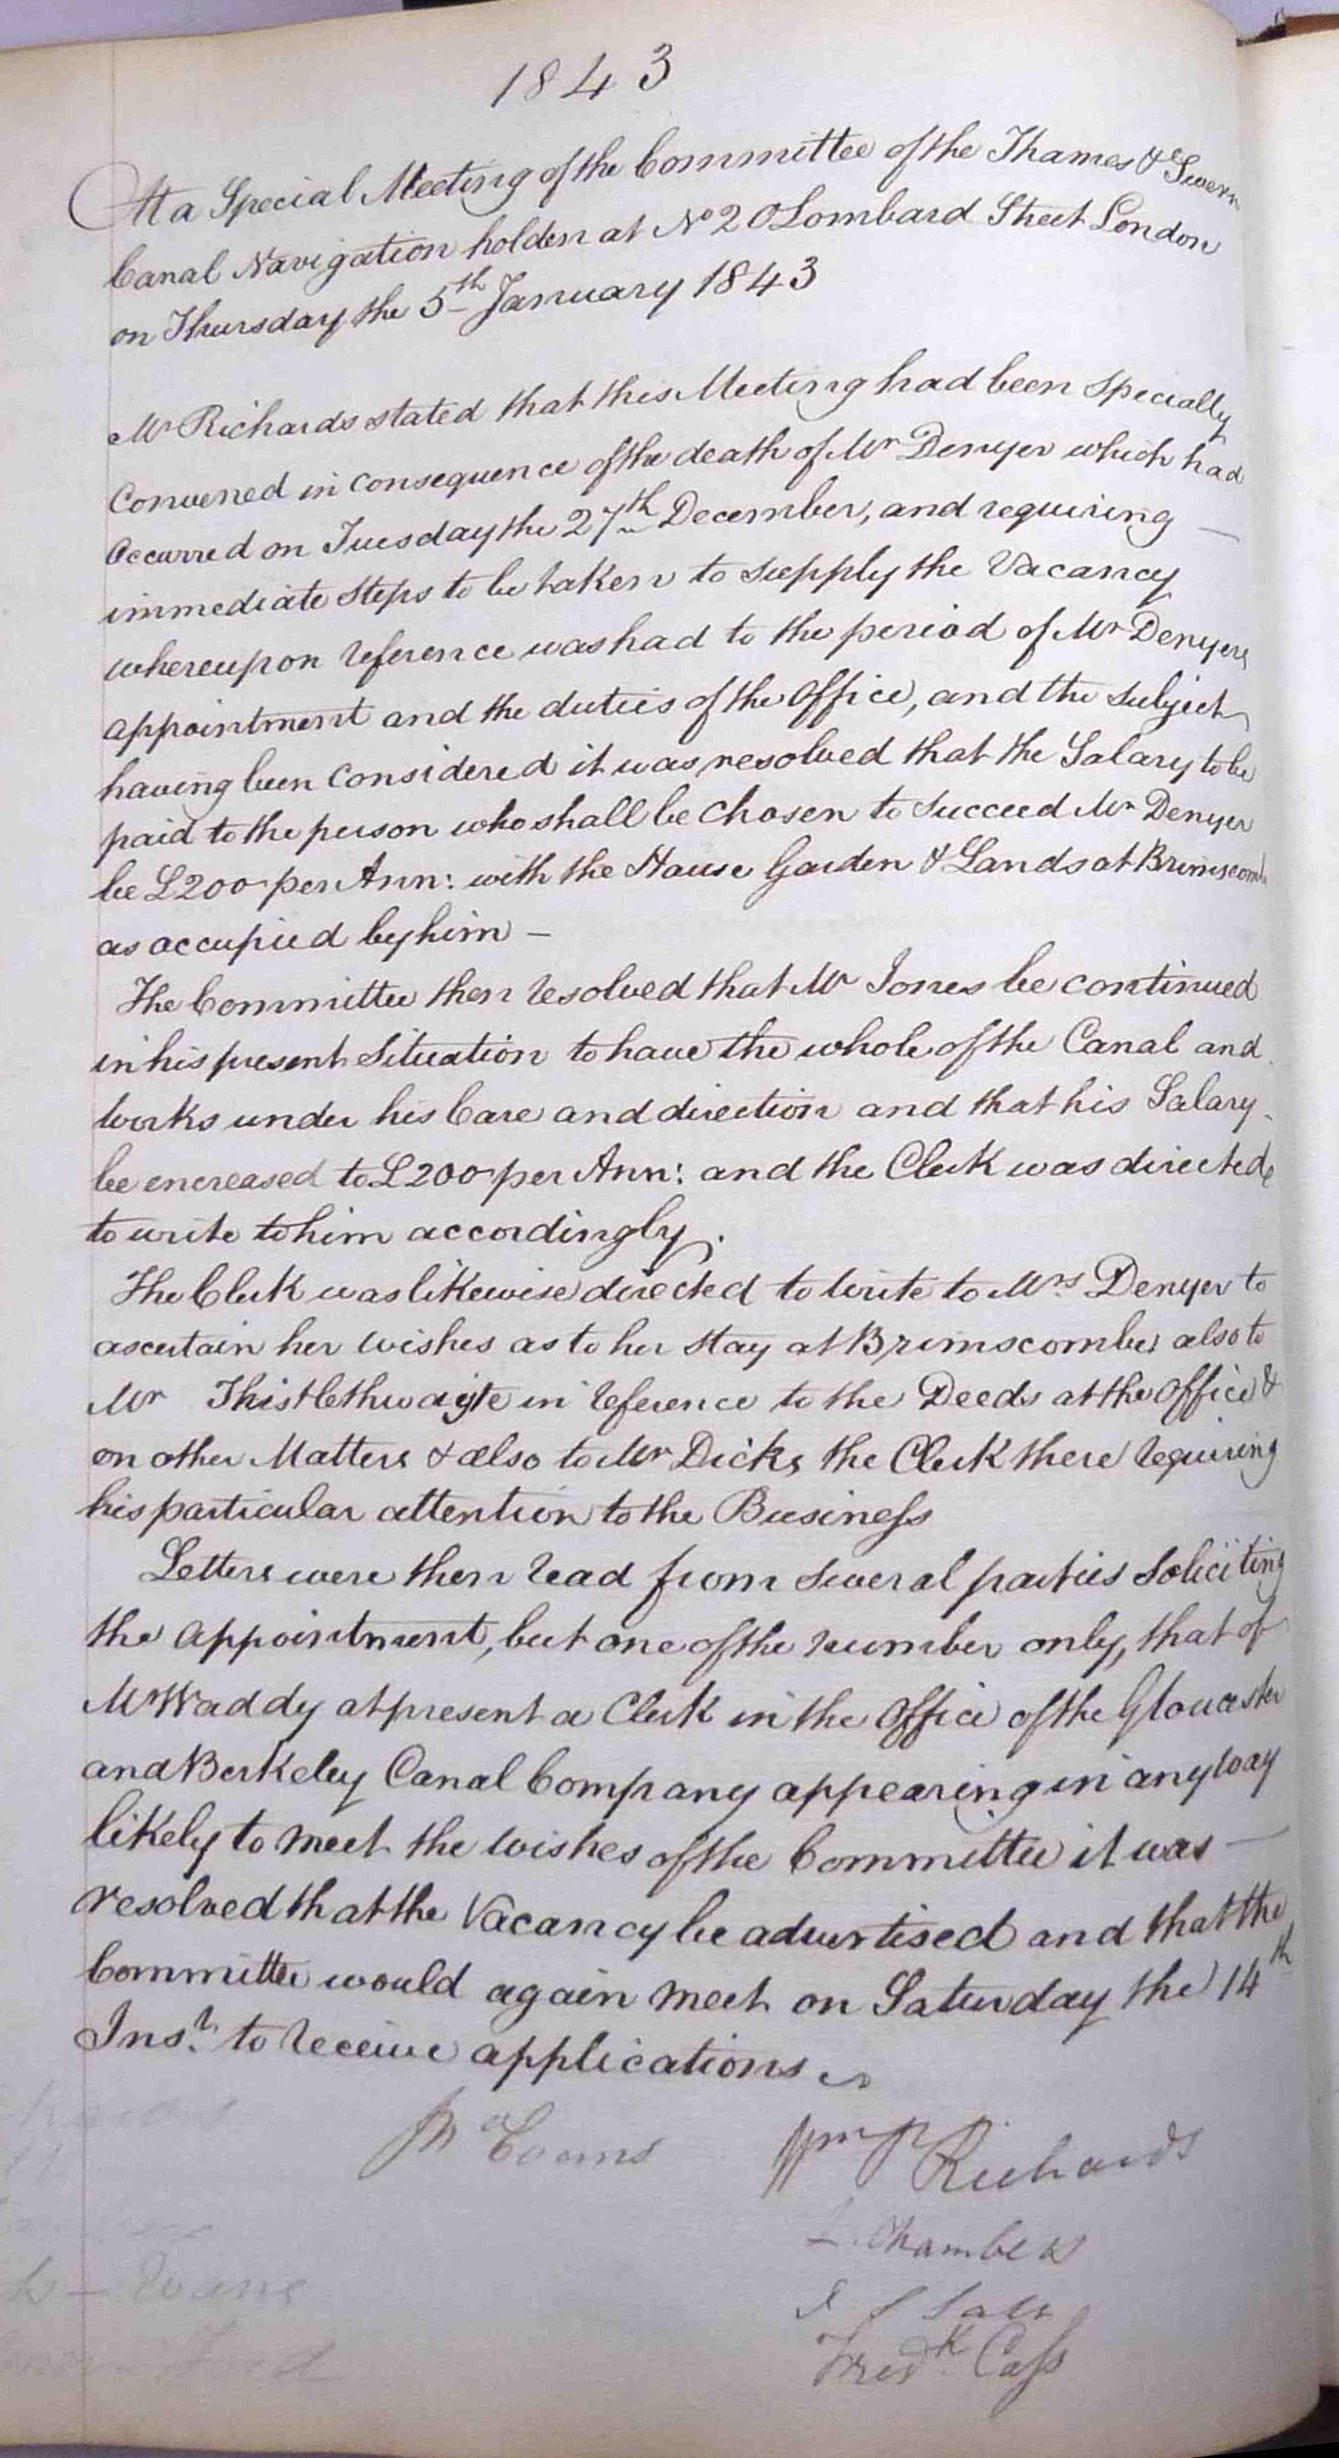 1843
At a Special Meeting of the Committee of the Thames & Severn
Canal Navigation holden at No 20 Lombard Street London
on Thursday the 5th January 1843
Mr Richards stated that this Meeting had been specially
Convened in consequence of the death of Mr Denyer which had
occurred on Tuesday the 27th December, and requiring —
immediate steps to be taken to supply the Vacancy
whereupon reference was had to the period of Mr Denyers
appointment and the duties of the Office, and the subject
having been considered it was resolved that the Salary to be
paid to the person who shall be chosen to succeed Mr Denyer
be £200 per Ann: with the House Garden & Lands at Brimscomb
as occupied by him —
The Committee then resolved that Mr Jones be continued
in his present Situation to have the whole of the Canal and
works under his Care and direction and that his Salary
be encreased to £200 per Ann: and the Clerk was directed
to write to him accordingly.
The Clerk was likewise directed to write to Mrs Denyer to
ascertain her wishes as to her stay at Brimscombe, also to
Mr Thistlethwayte in reference to the Deeds at the Office &
on other Matters & also to Mr Dicks the Clerk there requiring
his particular attention to the Business
Letters were then read from several parties soliciting
the appointment, but one of the number only, that of
Mr Waddy at present a Clerk in the Office of the Gloucester
and Berkeley Canal Company appearing in any way
likely to meet the wishes of the Committee it was —
resolved that the Vacancy be advertised and that the
Committee would again meet on Saturday the 14th
Inst. to receive applications
Evans
Wm P Richards
Chambers
Fredk Cass